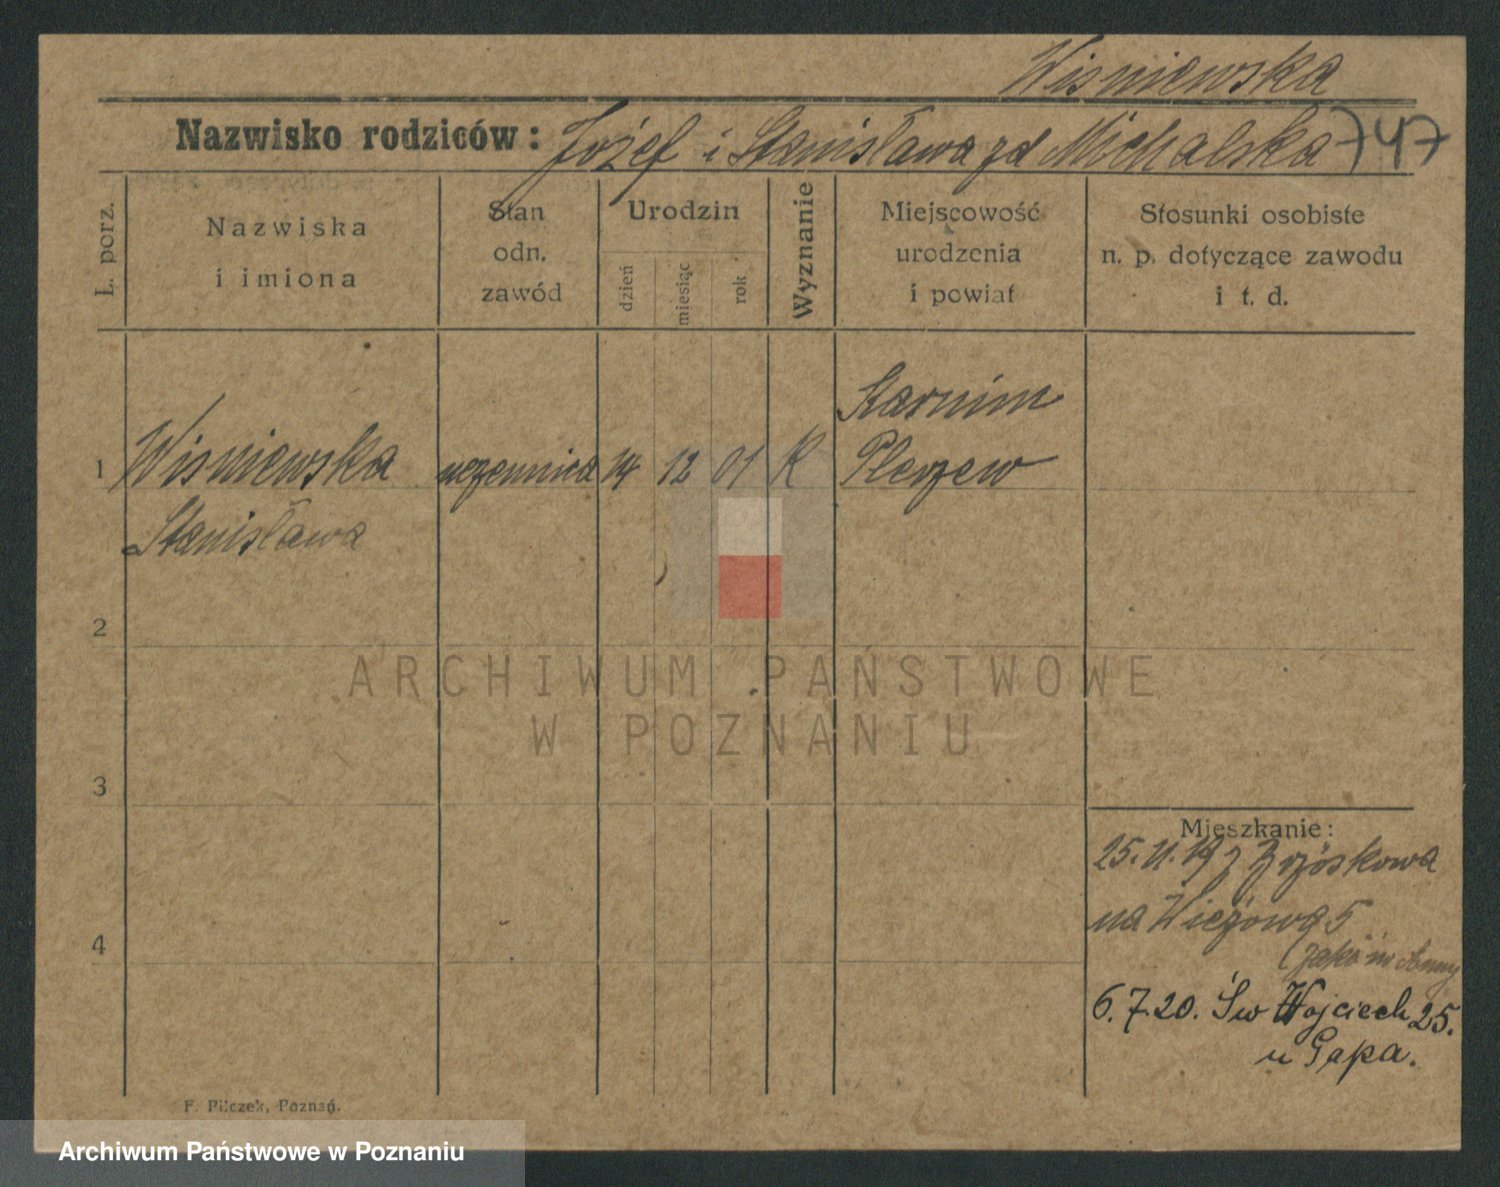 Wisniewska
Nazwisko rodziców: Józef i Stanisława zd Michalska 747
L. porz.
Nazwiska
i imiona
Stan
odn.
zawód
Urodzin
dzień
miesiąc
rok
Wyznanie
Miejscowość
urodzenia
i powiat
Stosunki osobiste
n. p. dotyczące zawodu
i t. d.
1 Wisniewska uczennica 14 12 01 K Karmin
Pleszew
Stanisława
2
3
4
Mieszkanie:
25. 11. 19 z
na Wieżową 5
6. 7. 20. Św Wojciech 25.
u Gapa.
F. Pilczek, Poznań.
ARCHIWUM PAŃSTWOWE
W POZNANIU
Archiwum Państwowe w Poznaniu